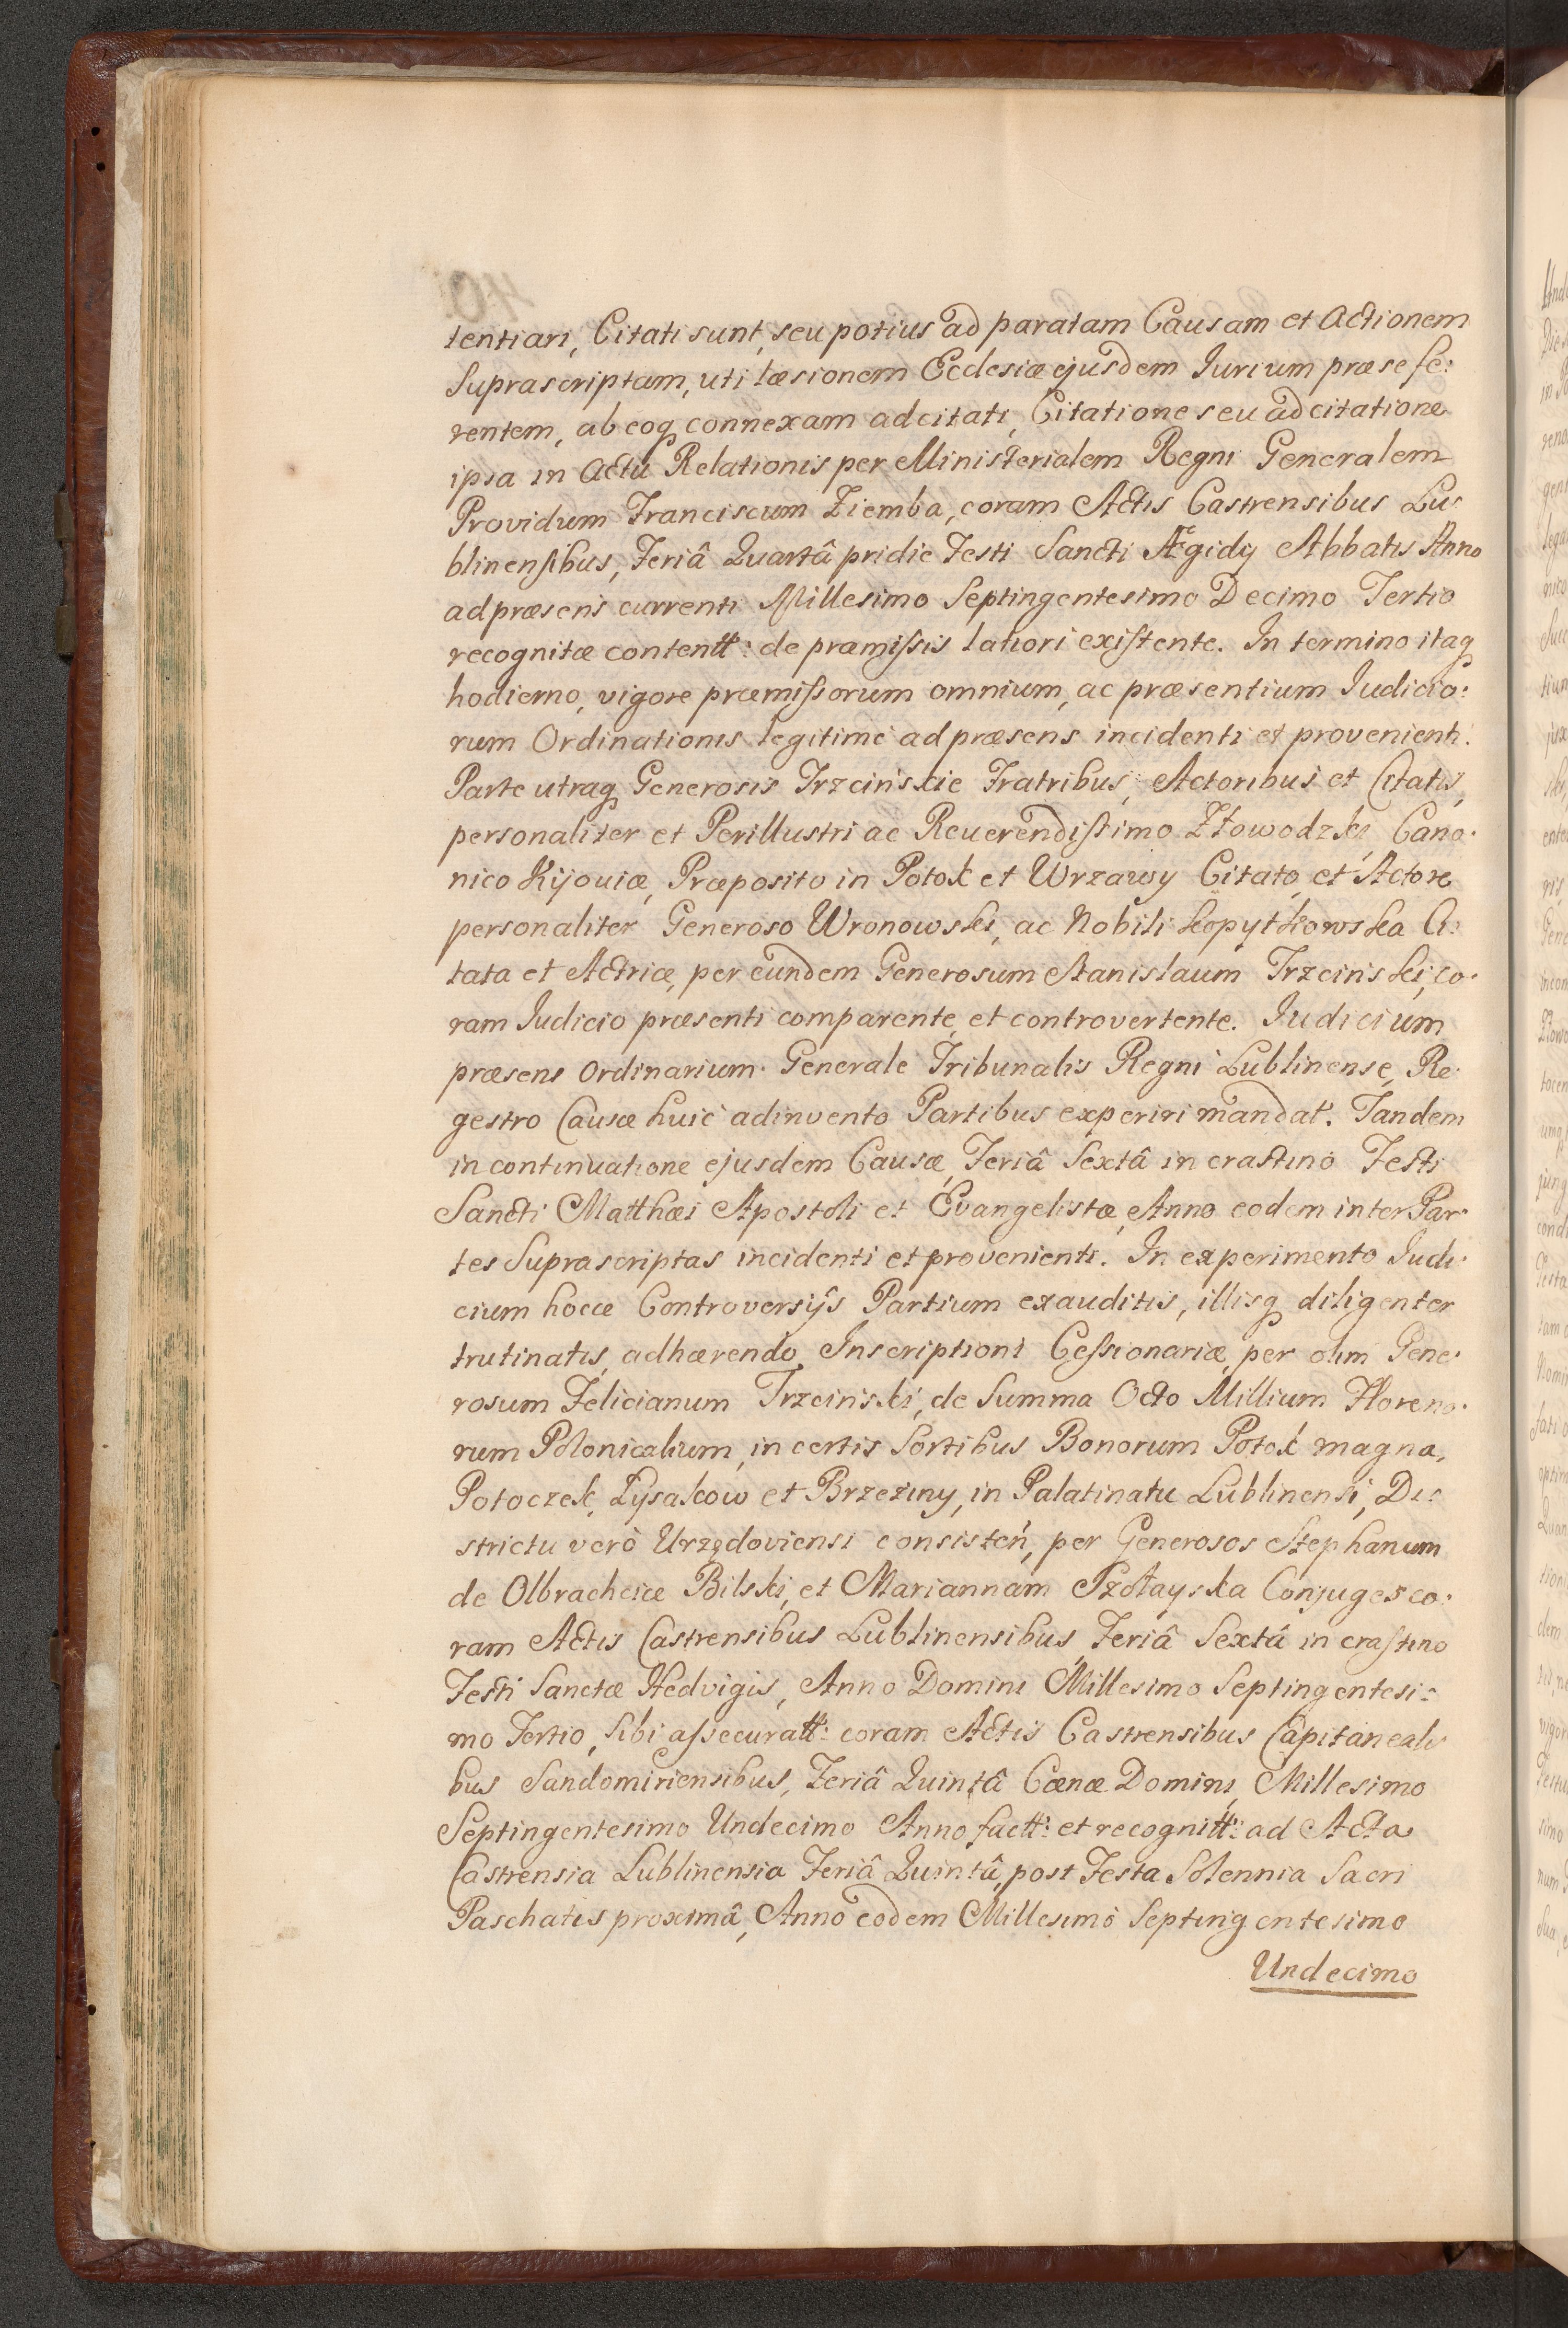 tentiari, Citati sunt, seu potius ad paratam Causam et Actionem
Suprascriptam, uti læsionem Ecclesiæ ejusdem Iurium præ se fe:
rentem, ab eoq connexam adcitati, Citatione seu adcitatione
ipsa in Actu Relationis per Ministerialem Regni Generalem
Providum Franciscum Ziemba, coram Actis Castrensibus Lu:
blinensibus, Feriâ Quartâ pridie Festi Sancti Ægidy Abbatis Anno
ad præsens currenti Millesimo Septingentesimo Decimo Tertio
recognitæ contentt: de præmissis latiori existente. In termino itaq
hodierno, vigore præmissorum omnium, ac præsentium Iudicio:
rum Ordinationis legitimè ad præsens incidenti et provenienti.
Parte utraq Generosis Trzcińskie Fratribus, Actoribus et Citatis,
personaliter et Perillustri ac Reuerendissimo Złowodzki, Cano:
nico Kijouiæ, Præposito in Potok et Wrzawy Citato, et Actore
personaliter Generoso Wronowski, ac Nobili Kopytkowska Ci:
tata et Actrice, per eundem Generosum Stanislaum Trzcinski, co:
ram Iudicio præsenti comparente, et controvertente. Iudicium
præsens Ordinarium Generale Tribunalis Regni Lublinense, Re:
gestro Causæ huic adinvento Partibus experiri mandat. Tandem
in continuatione ejusdem Causæ, Feriâ Sextâ in crastino Festi
Sancti Matthæi Apostoli et Evangelistæ, Anno eodem inter Par:
tes Suprascriptas incidenti et provenienti. In experimento Iudi:
cium hocce Controversijs Partium exauditis, illisq diligenter
trutinatis, adhærendo Inscriptioni Cessionariæ, per olim Gene:
rosum Felicianum Trzcinski, de Summa Octo Millium Floreno:
rum Polonicalium, in certis Sortibus Bonorum Potok magna,
Potoczek, Łysaków et Brzeziny, in Palatinatu Lublinensi, Di:
strictu verò Urzędoviensi consisteń, per Generosos Stephanum
de Olbrachcice Bilski, et Mariannam Pzołayska Conjuges co:
ram Actis Castrensibus Lublinensibus, Feriâ Sextâ in crastino
Festi Sanctæ Hedvigis, Anno Domini Millesimo Septingentesi:
mo Tertio, sibi assecuratt: coram Actis Castrensibus Capitaneali
bus Sandomiriensibus, Feriâ Quintâ Cænæ Domini, Millesimo
Septingentesimo Undecimo Anno factt: et recognitt: ad Acta
Castrensia Lublinensia Feriâ Quintâ, post Festa Solennia Sacri
Paschatis proximâ, Anno eodem Millesimo Septingentesimo
Undecimo